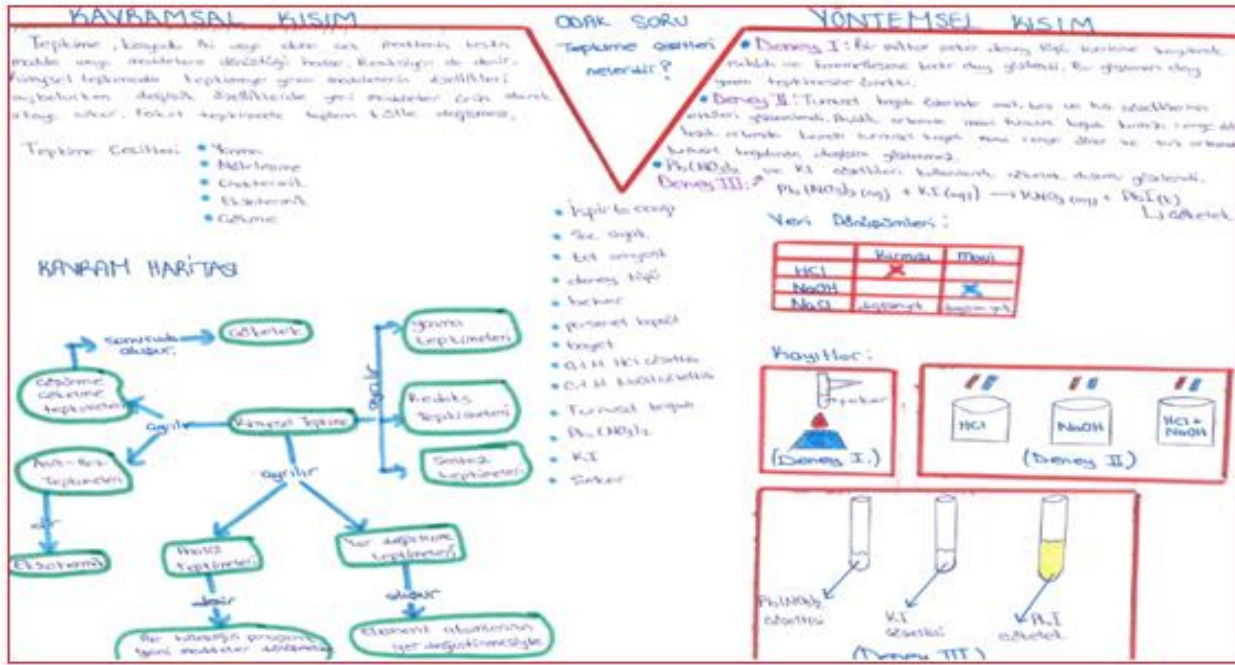 KAVRAMSAL KISIM
Tepkime, kimyada iki veya daha çok maddenin başka
madde veya maddelere dönüştüğü hadise. Reaksiyon da denir.
Kimyasal tepkimede tepkimeye giren maddelerin özellikleri
değişik özelliklerde yeni maddeler ürün olarak
ortaya çıkar. Fakat tepkimede toplam kütle değişmez.
Tepkime Çeşitleri
• Yanma
• Nötrleşme
• Endotermik
• Ekzotermik
• Çökme
KAVRAM HARİTASI
sonucunda oluşur
Çökelek
Çözünme çökelme tepkimeleri
Asit-Baz Tepkimeleri
Ekzotermik
ayrılır
Kimyasal Tepkime
ayrılır
ayrılır
yanma tepkimeleri
Redoks Tepkimeleri
Sentez tepkimeleri
Analiz tepkimeleri
denir
Bir bileşiğin
Yer değiştirme tepkimeleri
oluşur
Element atomlarının yer değiştirmesiyle
ODAK SORU
Tepkime çeşitleri
nelerdir?
• İspirto ocağı
• Sac ayak
• Tel amyant
• deney tüpü
• beher
•
• baget
• 0.1 M HCl çözeltisi
• 0.1 M NaOH çözeltisi
• Turnusol kağıdı
• Pb(NO3)2
• KI
• Şeker
YÖNTEMSEL KISIM
• Deney I: Bir miktar şeker deney tüpü içerisine koyularak
olay gösterildi. Bu gösterilen olay
yanma tepkimesine örnektir.
• Deney II: Turnusol kağıdı üzerinde asit, baz ve tuz çözeltilerinin
etkileri gözlemlendi. Asidik ortamda mavi turnusol kağıdı kırmızı renge döner
bazik ortamda kırmızı turnusol kağıdı mavi renge döner ve tuz ortamı
turnusol kağıdının değişim göstermez.
• Pb(NO3)2 ve KI çözeltileri kullanılarak çökelek oluşumu gözlendi.
Deney III: Pb(NO3)2(aq) + KI(aq) → KNO3(aq) + PbI(k)
↳ çökelek
Veri Dönüşümleri:
Kırmızı Mavi
HCl X
NaOH X
NaCl değişim yok değişim yok
Kayıtlar:
şeker
(Deney I.)
HCl
NaOH
HCl + NaOH
(Deney II)
Pb(NO3)2 çözeltisi
KI çözeltisi
PbI çökelek
(Deney III)